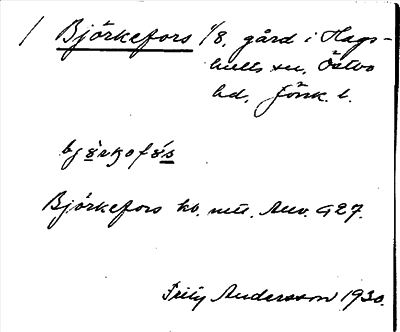 / Björkefors 1/8, gård i Hags-
hults sn, Östbo
hd, Jönk. l.
Björkefors kb. mtl. Anv. 927.
Fritz Andersson 1930.